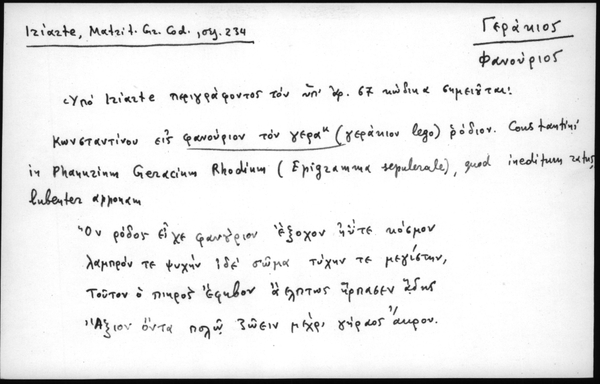 Iriarte, Matrit. Gr. Cod., σης. 234
Γεράκιος
Φανούριος
Ὑπὸ Iriarte περιγράφοντος τὸν ὑπ' ἀρ. 67 κώδικα σημειοῦται:
Κωνσταντίνου εἰς φανούριον τὸν γερακ (γεράκιον lego) ῥόδιον. Constantini
in Phanurium Geracium Rhodium (Epigramma sepulcrale), quod ineditum ratus,
lubenter apponam
"Ὃν ῥόδος εἶχε φανούριον ἔξοχον ἠΰτε κόσμον
λαμπρόν τε ψυχὴν ἰδὲ σῶμα τύχην τε μεγίστην,
Τοῦτον ὁ πικρὸς ἔφηβον ἀέλπτως ἥρπασεν ᾅδης
Ἄξιον ὄντα πολῷ ζώειν μέχρι γήραος ἄκρου.